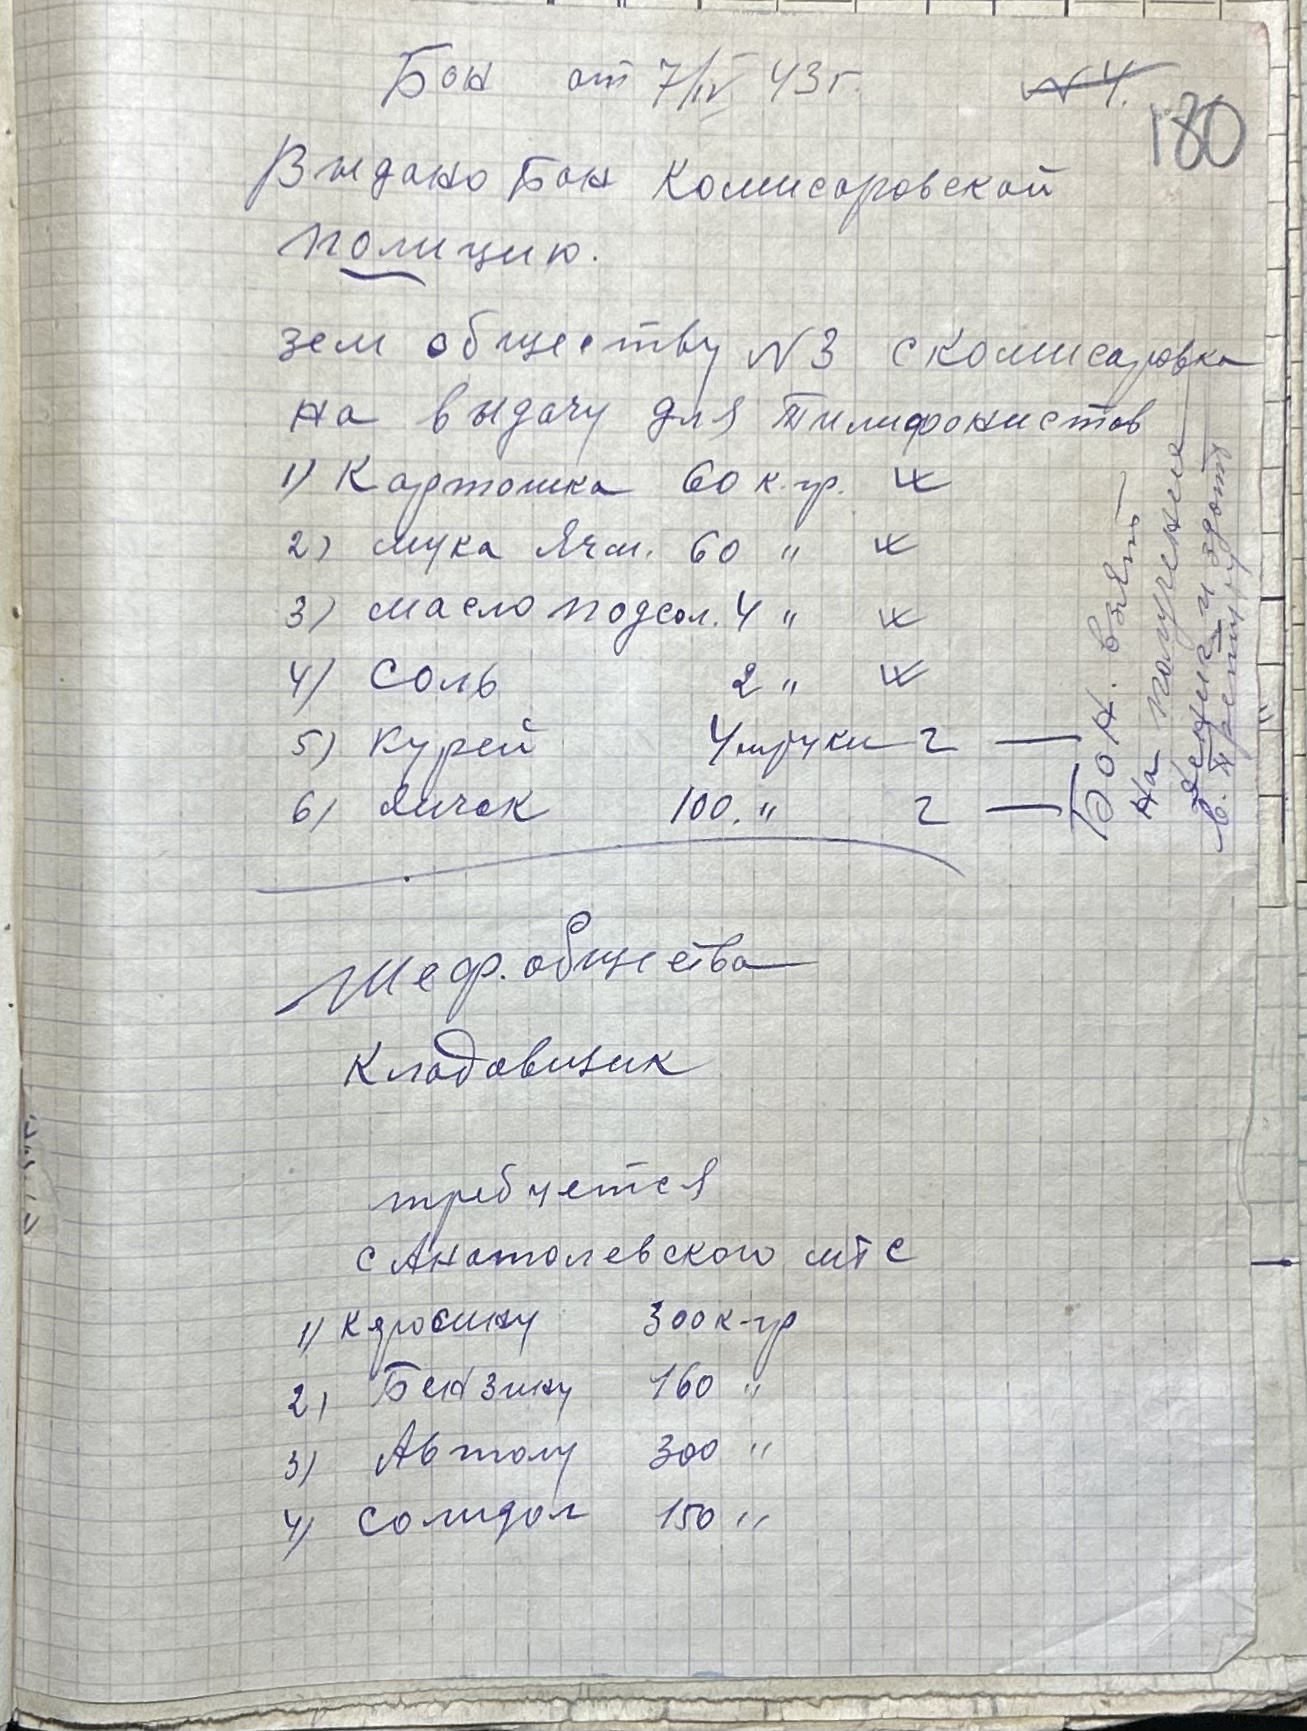 Бон от 7/IV 43 г. N 4.
180
Выдано Бон Комисаровской
полицию.
зем обществу N 3 с Комисаровка
на выдачу для тилифонистов
1) Картошка 60 к.гр.
2) мука Ячм. 60 "
3) масло подсол. 4 "
4) Соль 2 "
5) Курей 4 штуки 2 —
6) Яичек 100. " 2 —
Бон. взят
на получение
в.
Шеф. общества
Кладовщик
требуется
с Анатолевского мтс
1) Кяросину 300 к-гр
2) Бензину 160 "
3) Автолу 300 "
4) Солидол 150 "